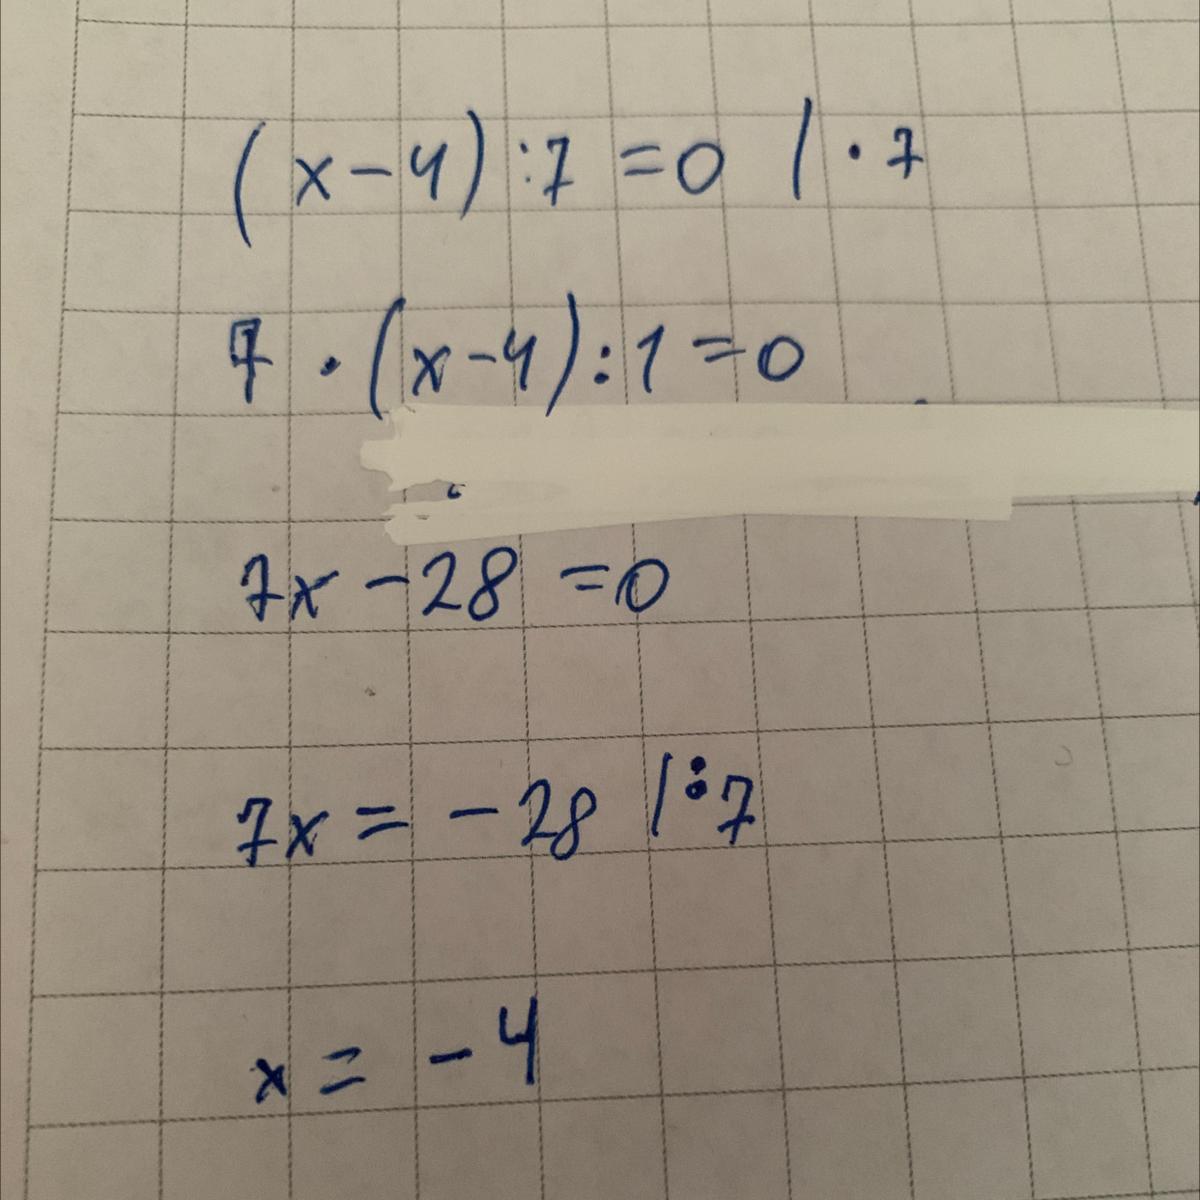 (x-4):7=0 /·7
7·(x-4):1=0
7x-28=0
7x=-28 /:7
x=-4